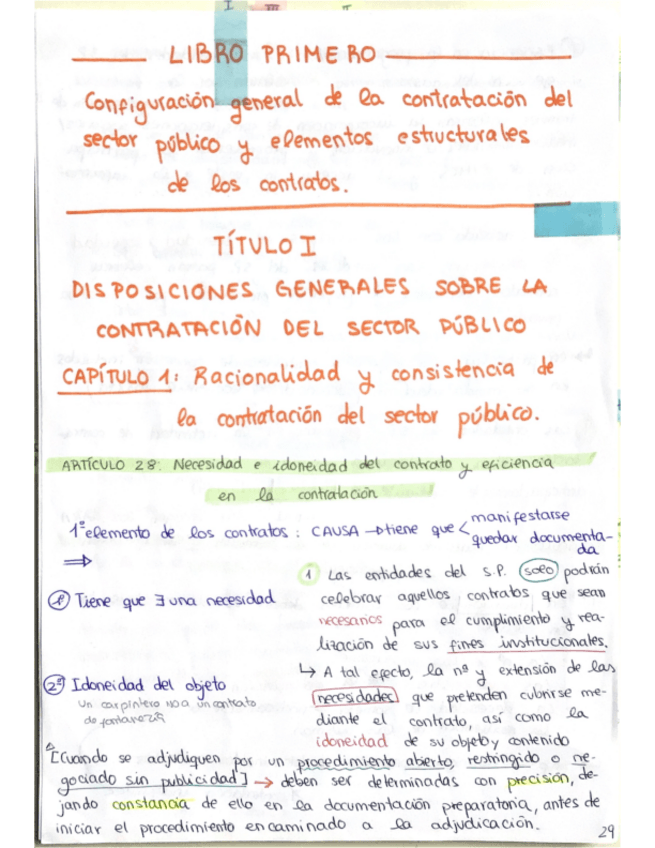 I III II
LIBRO PRIMERO
Configuración general de la contratación del
sector público y elementos estructurales
de los contratos.
TÍTULO I
DISPOSICIONES GENERALES SOBRE LA
CONTRATACIÓN DEL SECTOR PÚBLICO
CAPÍTULO 1: Racionalidad y consistencia de
la contratación del sector público.
ARTÍCULO 28: Necesidad e idoneidad del contrato y eficiencia
en la contratación
1º elemento de los contratos: CAUSA → tiene que < manifestarse
quedar documenta-
da
⇒
1º Tiene que ∃ una necesidad
2º Idoneidad del objeto
Un carpintero no a un contrato
de fontanería
1 Las entidades del S.P. solo podrán
celebrar aquellos contratos que sean
necesarios para el cumplimiento y rea-
lización de sus fines institucionales.
↳ A tal efecto, la nª y extensión de las
necesidades que pretenden cubrirse me-
diante el contrato, así como la
idoneidad de su objeto y contenido
[Cuando se adjudiquen por un procedimiento abierto, restringido o ne-
gociado sin publicidad] → deben ser determinadas con precisión, de-
jando constancia de ello en la documentación preparatoria, antes de
iniciar el procedimiento encaminado a la adjudicación.
29